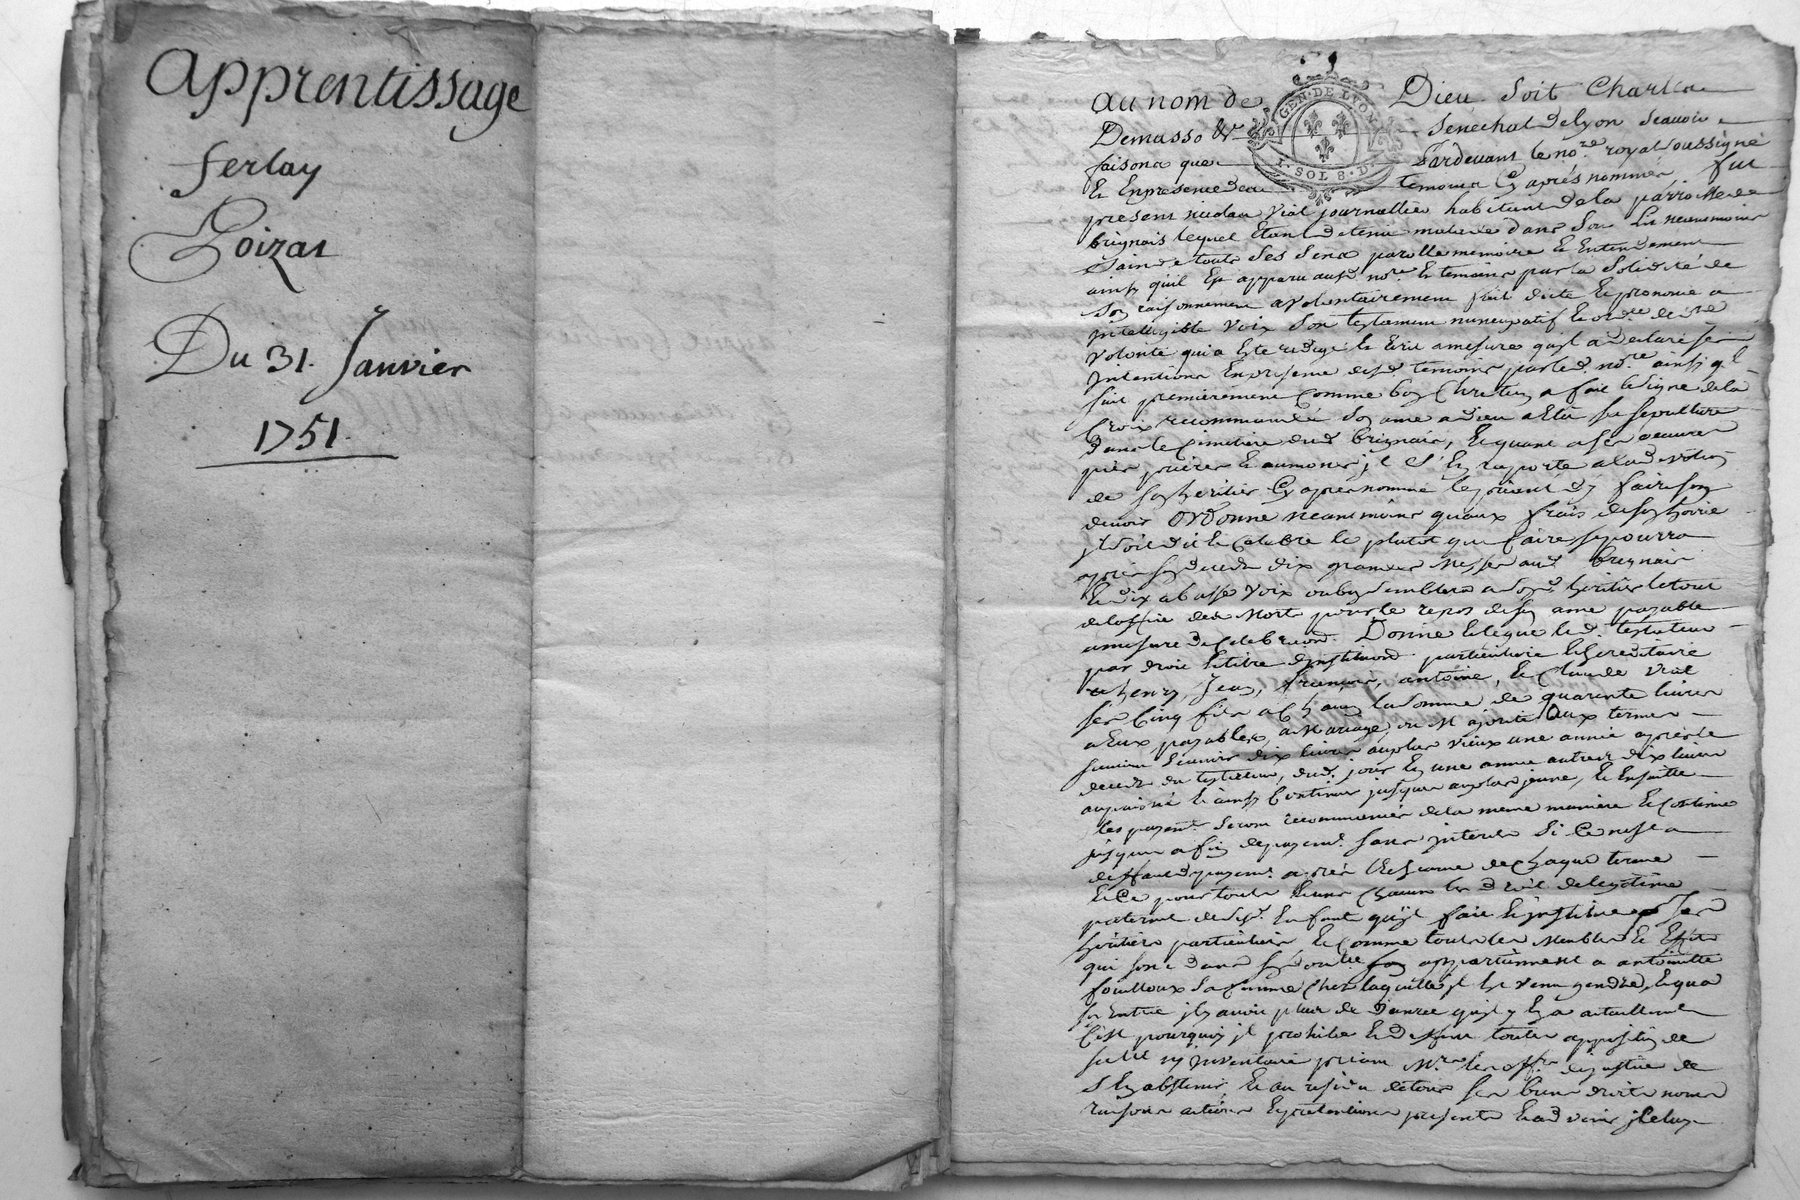 apprentissage
ferlay
Loizat
Du 31. Janvier
1751.
GEN. DE LYON
L. SOL 8. D
au nom de Dieu soit Charles
Demasso &c Senechal de lyon scavoir
faisons que Pardevant le nore. royal soussigné
Et En presence des temoins Cy aprés nommés fut
present nicolas vial journallier habitant de la parroisse de
brignais lequel Etant detenu malade dans son Lit neanmoins
sain de touts ses sens parolle memoire Et Entendement
ainsy quil Est apparu aud. nore. Et temoins par la solidité de
son raisonnement a volontairement fait dicté Et prononcé a
intelligible voix son testament nuncupatif Et ordre. de dre
volonté qui a Eté redigé Et Ecrit a mesure quil a declaré ses
intentions En presence desd. temoins par led. nore. ainsy ql.
suit premierement Comme bon Chretien a fait le signe de la
Croix recommandé son ame a dieu a Elu sa sepulture
dans le Cimetiere dud. brignais, Et quant a ses oeuvres
pies prieres Et aumones il S'En raporte a la devotion
de son heritier Cy apres nommé le priant d'y faire son
devoir Ordonne neantmoins quaux frais de son hoirie
il soit dit Et Celebré le plutot que faire se pourra
aprés son decedz dix grandes Messes aud. brignais
Et dix a basse voix ou bon semblera a sond. heritier le tout
de loffice des Morts pour le repos de son ame payable
a mesure de Celebraon. Donne Et legue led. testateur
par droit Et titre dinstituaon. particuliere Et hereditaire
a henry, Jean, francois, antoine, Et Claude vial
ses Cinq fils a Chacun la somme de quarante livres
a Eux payables, a Mariage, ou Majorité aux termes
suivant scavoir dix livres au plus vieux une année apres le
decedz du testateur, dud. jour En une année autres dix livres
au puisné Et ainsy Continuer jusques au plus jeune, Et Ensuitte
les payemts. seront recommencés de la meme maniere Et Continué
jusques a fin de payemt. sans interets si Ce nest a
deffaut de payemt. aprés l'Echeance de Chaque terme
Et Ce pour touts Leurs droits de legitime
paternels desd. Enfants quil fait Et institue ses
heritiers particuliers, Et Comme touts les Meubles Et Effets
qui sont dans son appartiennent a antoinette
fouilloux sa femme Chez laquelle il Est venu gendre, Et qua
son Entrée il y avoit plus de danrée quil y En a actuellement
C'est pourquoy il prohibe Et deffend toute apposition de
scellé ny inventaire priant Mrs. les offrs. de justice de
s'En abstenir, Et au residu de tous ses biens droits noms
raisons actions Et pretentions presents Et advenir il